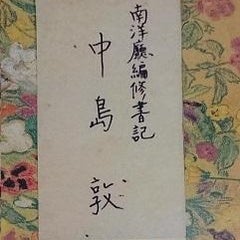 南洋廳編修書記
中島敦